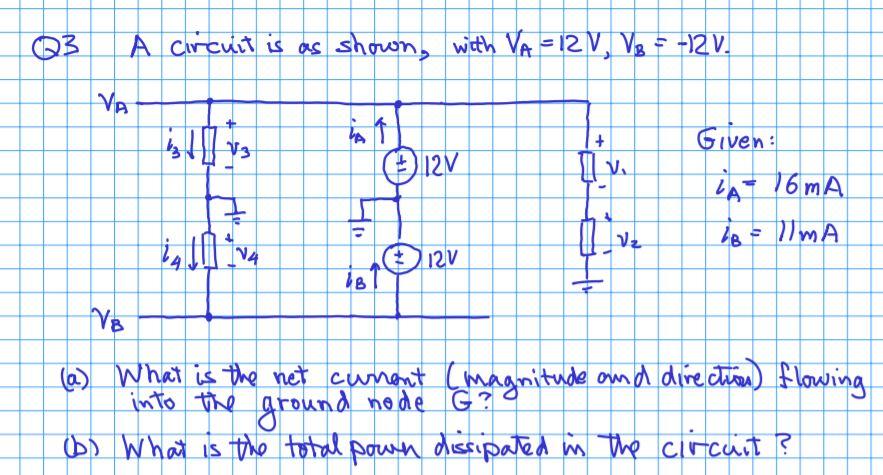 Q3 A circuit is as shown, with VA = 12 V, VB = -12V.
VA
i3 + V3 -
iA ± 12V
+ V1 -
Given:
iA = 16mA
iB = 11mA
i4 + V4 -
iB ± 12V
+ V2 -
VB
(a) What is the net current (magnitude and direction) flowing
into the ground node G?
(b) What is the total power dissipated in the circuit?